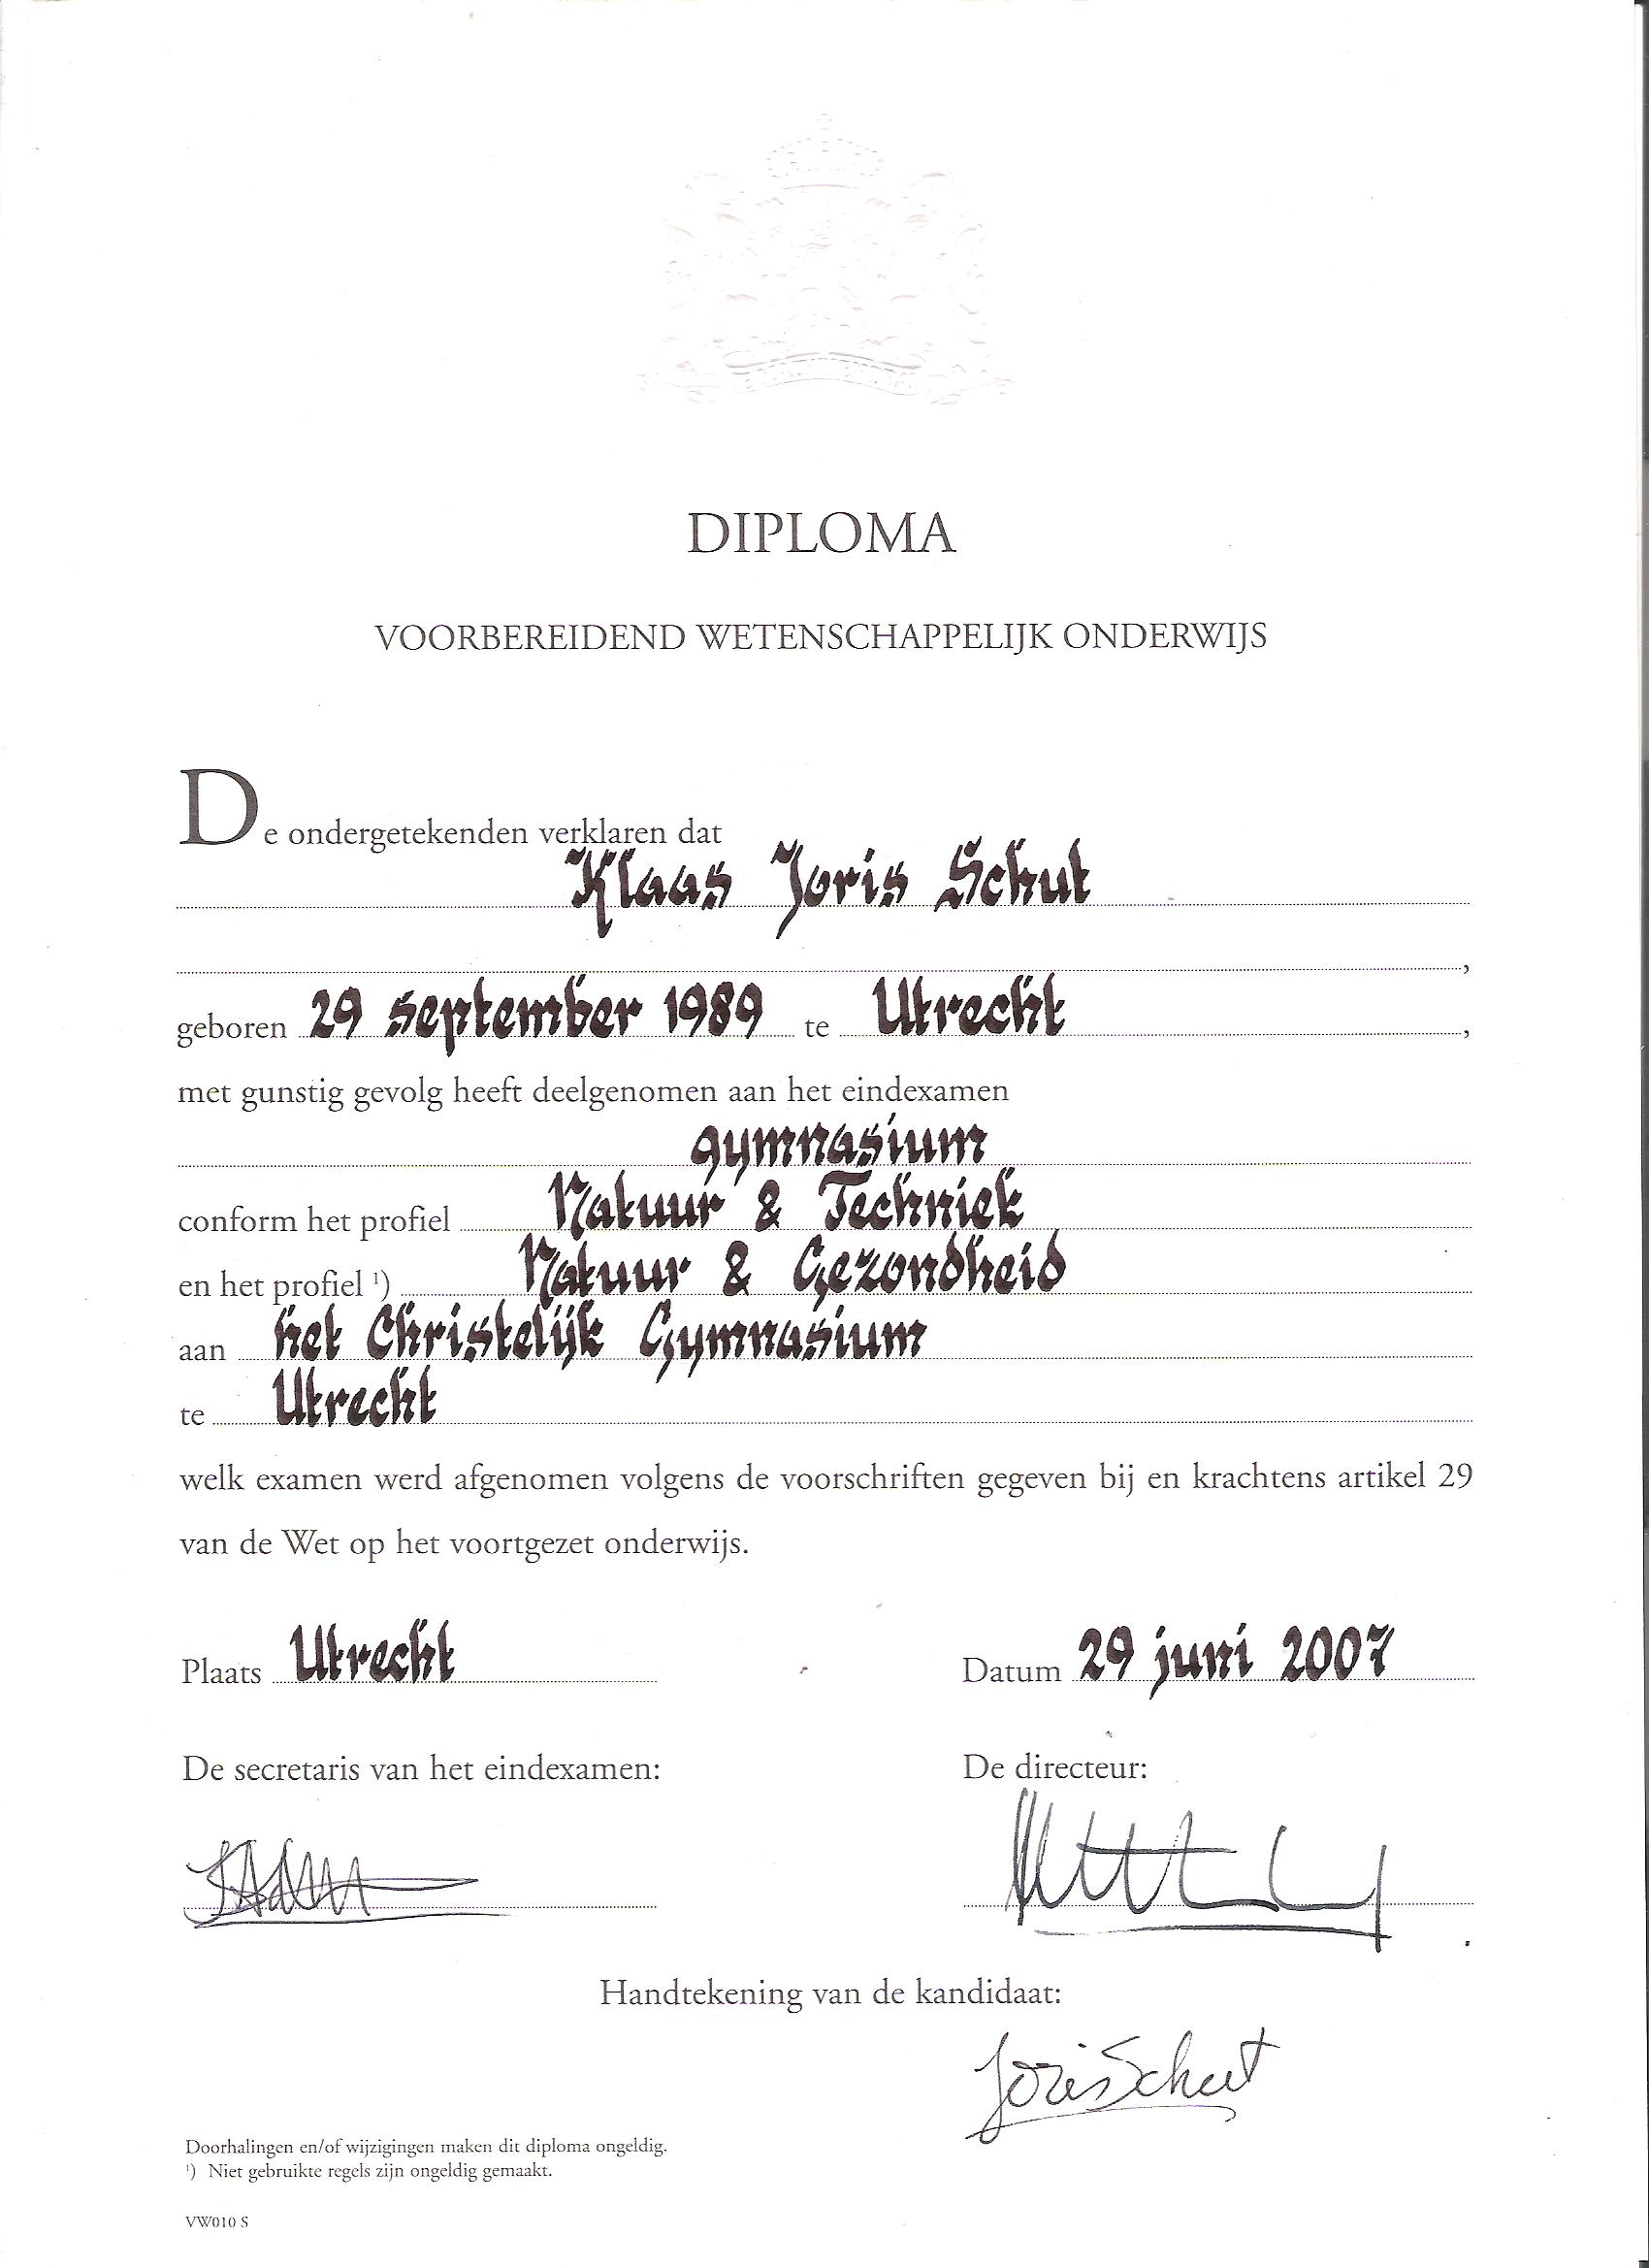 DIPLOMA
VOORBEREIDEND WETENSCHAPPELIJK ONDERWIJS
De ondergetekenden verklaren dat
Klaas Joris Schut
,
geboren 29 september 1989 te Utrecht ,
met gunstig gevolg heeft deelgenomen aan het eindexamen
gymnasium
conform het profiel Natuur & Techniek
en het profiel ¹) Natuur & Gezondheid
aan het Christelijk Gymnasium
te Utrecht
welk examen werd afgenomen volgens de voorschriften gegeven bij en krachtens artikel 29
van de Wet op het voortgezet onderwijs.
Plaats Utrecht Datum 29 juni 2007
De secretaris van het eindexamen: De directeur:
Handtekening van de kandidaat:
Joris Schut
Doorhalingen en/of wijzigingen maken dit diploma ongeldig.
¹) Niet gebruikte regels zijn ongeldig gemaakt.
VW010 S